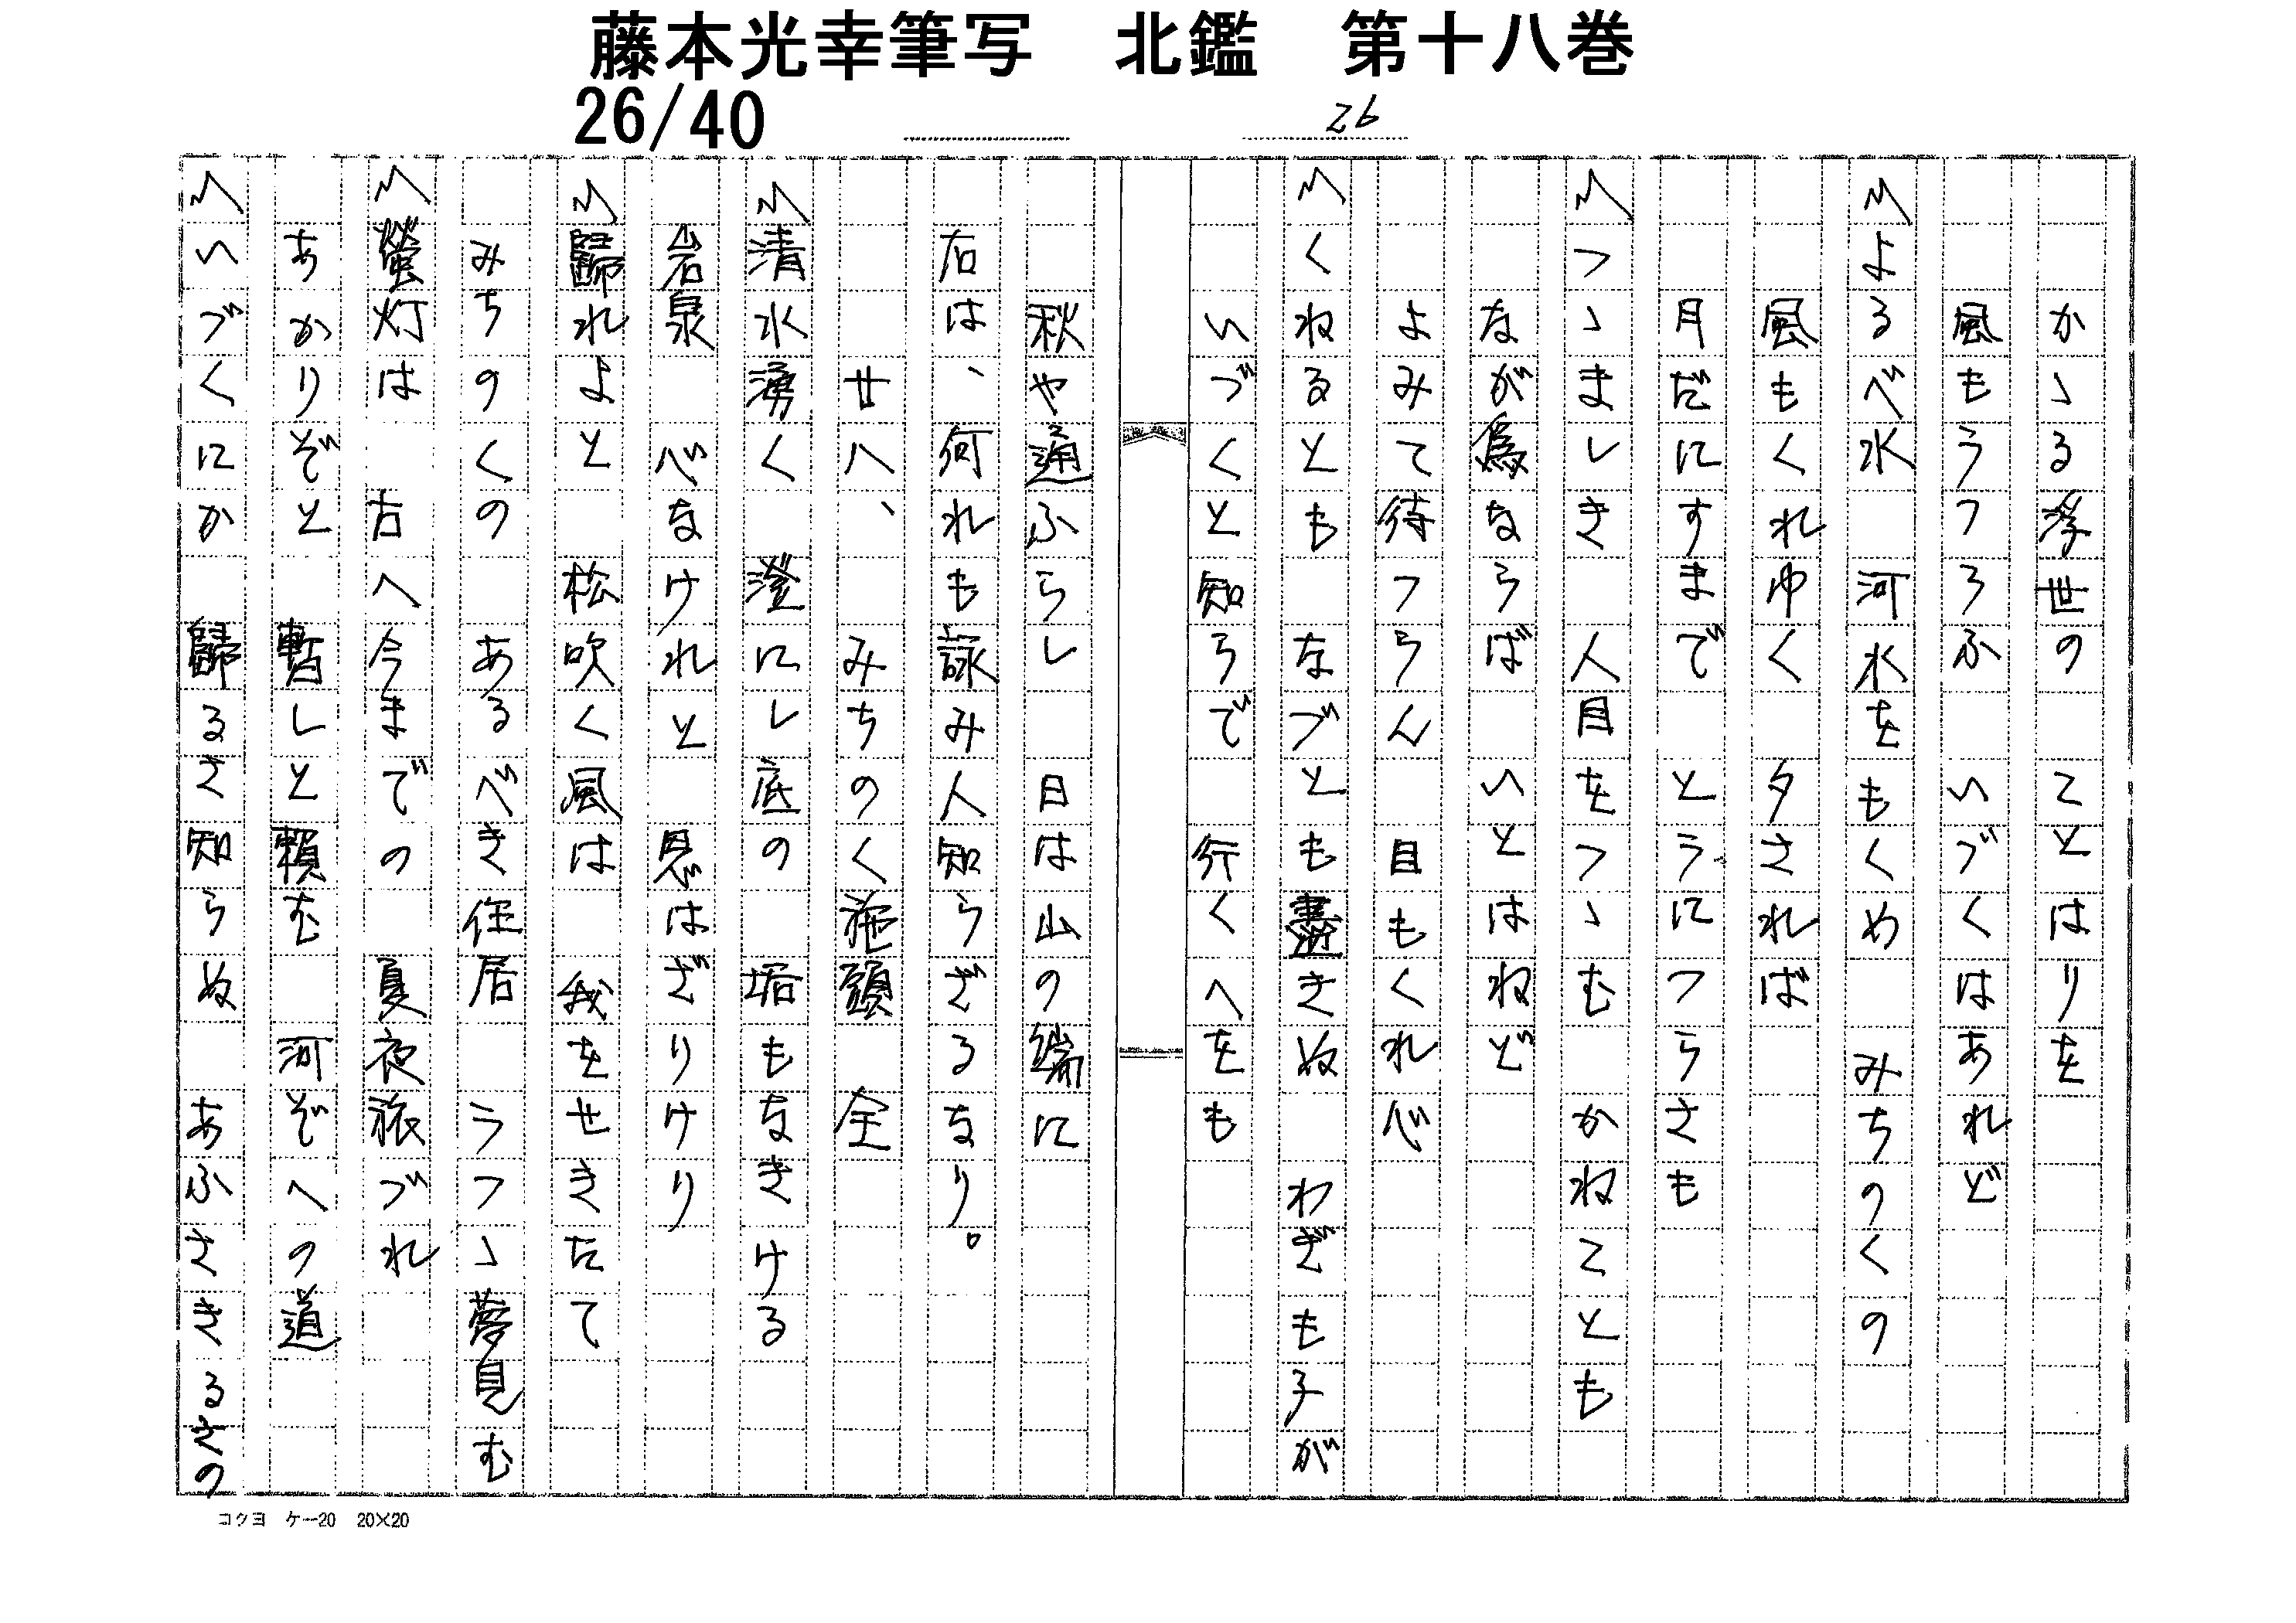 藤本光幸筆写 北鑑 第十八巻
26/40
26
かゝる浮世の ことはりを
風もうつろふ いづくはあれど
〽よるべ水 河水をもくめ みちのくの
風もくれゆく 夕されば
月だにすまで とうにつらさも
〽つゝましき 人目をつゝむ かねことも
なが為ならば いとはねど
よみて待つらん 目もくれ心
〽くねるとも なブとも盡きぬ わぎも子が
いづくと知らで 行くへをも
秋や通ふらし 日は山の端に
右は、何れも詠み人知らざるなり。
廿八、 みちのく施頭 全
〽清水湧く 澄にし底の 垢もなきける
岩泉 心なけれと 思はざりけり
〽歸れよと 松吹く風は 我をせきたて
みちのくの あるべき住居 うつゝ夢見む
〽螢灯は 古へ今までの 夏夜旅づれ
あかりぞと 暫しと頼む 河ぞへの道
〽いづくにか 歸るさ知らぬ あふさきるさの
コクヨ ケー20 20×20